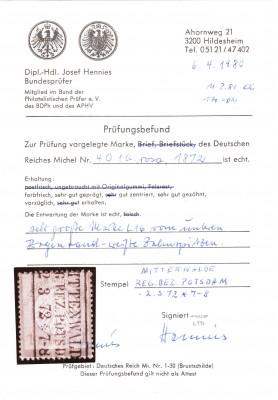 Ahornweg 21
3200 Hildesheim
Tel. 0 51 21 / 47 402
6.4.1980
Dipl.-Hdl. Josef Hennies
Bundesprüfer
Mitglied im Bund der
Philatelistischen Prüfer e. V.
des BDPh und des APHV
Prüfungsbefund
Zur Prüfung vorgelegte Marke, Brief, Briefstück, des Deutschen
Reiches Michel Nr. rosa 1872 ist echt.
Erhaltung:
postfrisch, ungebraucht mit Originalgummi, Falzrest,
farbfrisch, sehr gut geprägt, sehr gut zentriert, sehr gut gezähnt,
vorzüglich, sehr gut erhalten.
Die Entwertung der Marke ist echt, falsch.
sehr große Marke vom unteren
Bogenrand - weiße Zahnspitzen.
MITTENWALDE
Stempel REG. BEZ. POTSDAM
Signiert
Hennies
Prüfgebiet: Deutsches Reich Mi. Nr. 1-30 (Brustschilde)
Dieser Prüfungsbefund gilt nicht als Attest